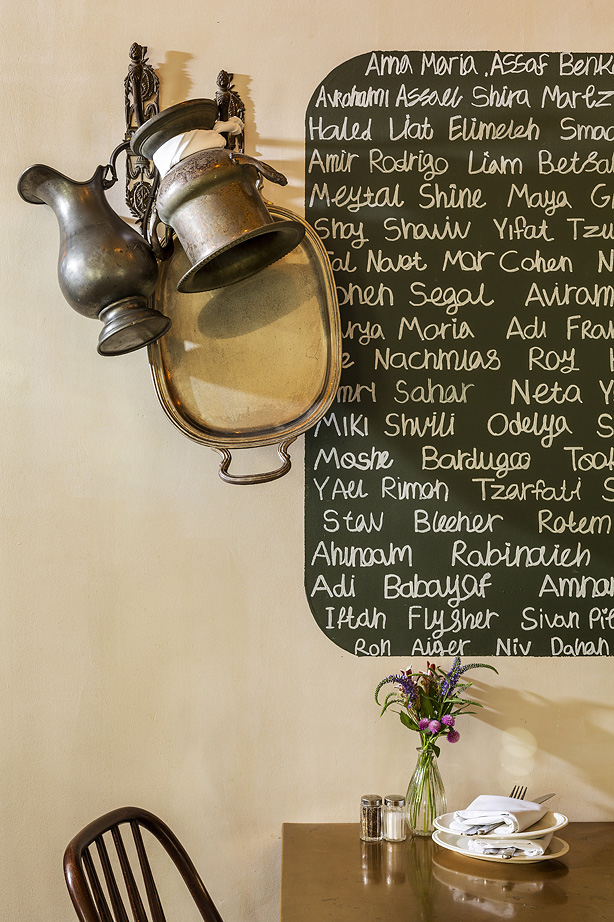 Ama Maria , Assaf Benk
Avrahami Assael Shira Martz
Haled Liat Elimeleh Smad
Amir Rodrigo Liam Betsa
Meytal Shine Maya G
Shay Shaviv Yifat Tzu
Tal Navet Mor Cohen N
ohen Segal Aviram
urya Maria Adi Fran
e Nachmias Roy
mri Sahar Neta Y
Miki Shvili Odelya S
Moshe Bardugoo Too
YAel Rimon Tzarfati S
Stav Blecher Rotem
Ahinoam Rabinovich
Adi Babayof Amno
Iftah Flysher Sivan Pi
Ron Aiger Niv Dahan